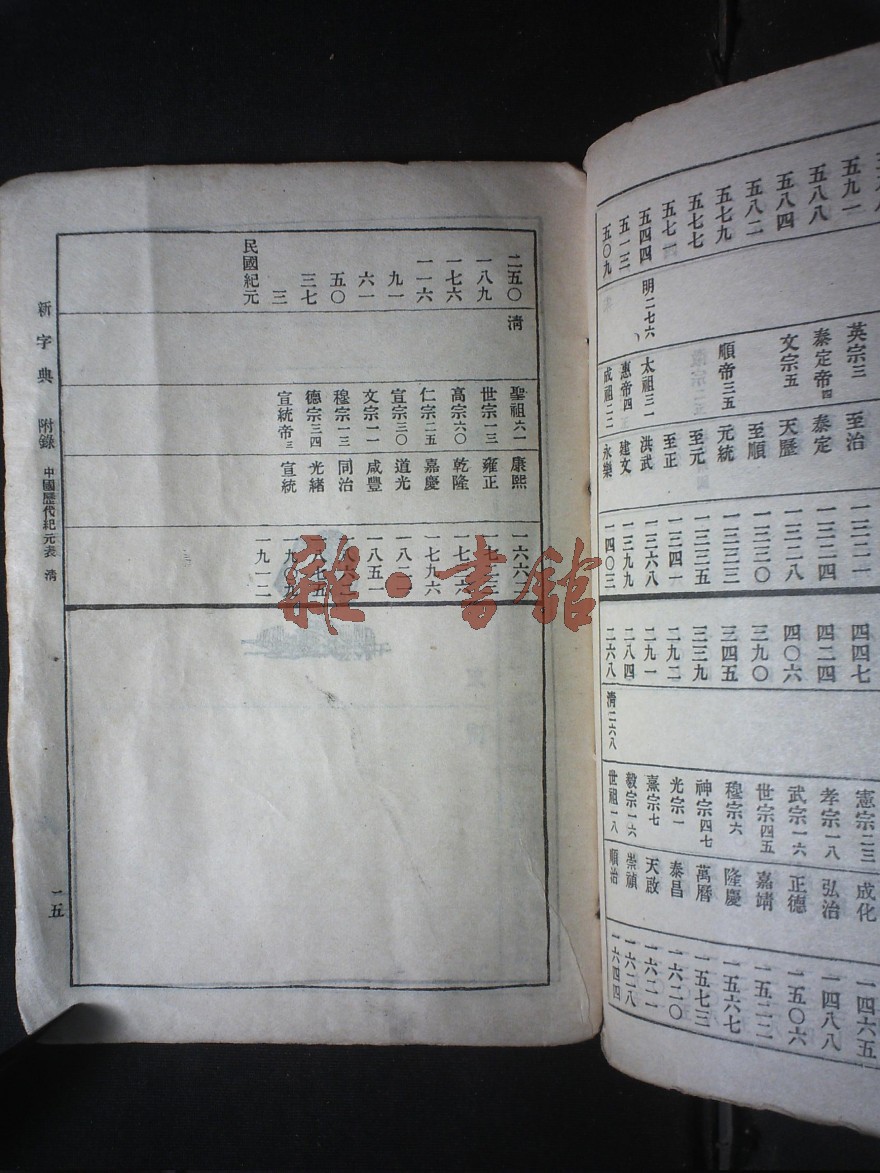 五九一 英宗三 至治 一三二一
五八八 泰定帝四 泰定 一三二四
五八四 文宗五 天歷 一三二八
五八二 至順 一三三〇
五七九 順帝三五 元統 一三三三
五七七 至元 一三三五
五七一 至正 一三四一
五四四 明二七六 太祖三一 洪武 一三六八
五一三 惠帝四 建文 一三九九
五〇九 成祖二二 永樂 一四〇三
四四七 憲宗二三 成化 一四六五
四二四 孝宗一八 弘治 一四八八
四〇六 武宗一六 正德 一五〇六
三九〇 世宗四五 嘉靖 一五二二
三四五 穆宗六 隆慶 一五六七
三三九 神宗四七 萬曆 一五七三
二九二 光宗一 泰昌 一六二〇
二九一 熹宗七 天啟 一六二一
二八四 毅宗一六 崇禎 一六二八
二六八 清二六八 世祖一八 順治 一六四四
二五〇 清 聖祖六一 康熙 一六六二
一八九 世宗一三 雍正 一七二三
一七六 高宗六〇 乾隆 一七三六
一一六 仁宗二五 嘉慶 一七九六
九一 宣宗三〇 道光 一八二一
六一 文宗一一 咸豐 一八五一
五〇 穆宗一三 同治 一八六二
三七 德宗三四 光緒 一八七五
三 宣統帝三 宣統 一九〇九
民國紀元 一九一二
新字典 附錄 中國歷代紀元表 清 一五
雜·書館